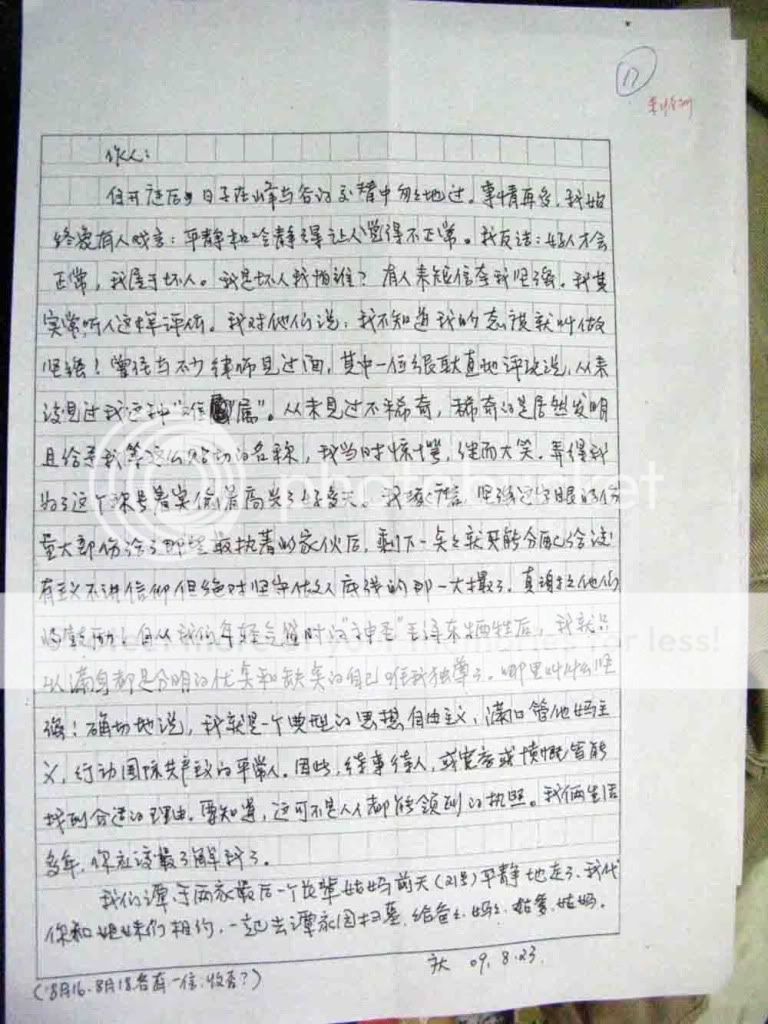 作人：
任开这后，日子在峰与谷的交替中匆匆地过。事情再多，我始
终爱有人戏言：平静和冷静得让人觉得不正常。我反诘：好人才会
正常，我属于坏人。我是坏人我怕谁？有人来短信夸我坚强。我其
实常听人这样评价。我对他们说：我不知道我的态度就叫做
坚强！曾经与不少律师见过面，其中一位很耿直地评论说，从来
没见过我这种“难属”。从未见过不稀奇，稀奇的是居然发明
且给予我等这么贴切的名称，我当时惊愕，继而大笑。弄得我
为了这个绰号着实偷着高兴了好多天。我
量大部份给了那些最执著的家伙后，剩下一点点就只能分配给没
有主义不讲信仰但绝对坚守做人底线的那一大撮了。真
自从我们年轻气盛时的“神圣”毛泽东牺牲后，我就只
以满身都是分明的优点和缺点的自己唯我独尊了。哪里叫什么坚
强！确切地说，我就是一个典型的思想自由主义，满口管他妈主
义，行动国际共产主义的平常人。因此，待事待人，或宽容或愤慨皆能
找到合适的理由。要知道，这可不是人人都能领到的执照。我俩生活
多年，你应该最了解我了。
我们谭、于两家最后一个长辈姑妈前天（21号）平静地走了。我代
你和姐妹们相约，一起去谭家园扫墓，给爸爸、妈妈、姑爹、姑妈。
09.8.23.
（8月16、8月18各有一信，收否？）
17
photobucket